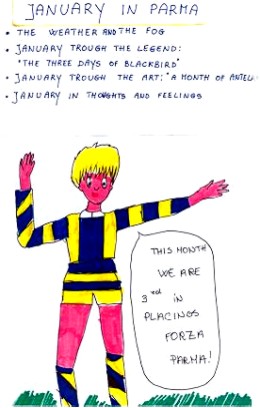 JANUARY IN PARMA
• THE WEATHER AND THE FOG
• JANUARY TROUGH THE LEGEND:
"THE THREE DAYS OF BLACKBIRD"
• JANUARY TROUGH THE ART: "A MONTH OF
• JANUARY IN THOUGHTS AND FEELINGS
THIS MONTH
WE ARE
3rd IN
PLACINGS
FORZA
PARMA!